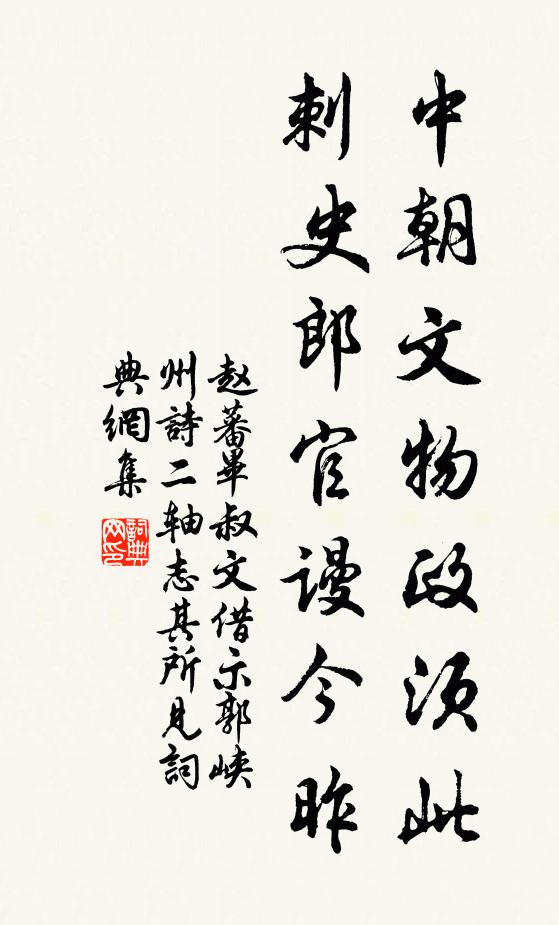 中朝文物政须此
刺史郎官谩今昨
赵蕃畢叔文借示郭峡
州詩二轴志其所見詞
典網集
詞典网印